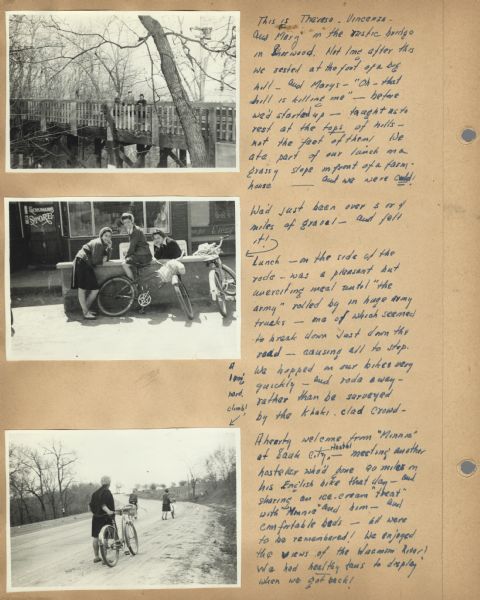 This is Theresa - Vincenza -
and Mary on the rustic bridge
in Burrwood. Not long after this
we rested at the foot of a big
hill - and Marys - "Oh - that
hill is killing me" - before
we'd started up - taught us to
rest at the tops of hills -
not the feet of them! We
ate part of our lunch on a
grassy slope in front of a farm-
house — and we were cold!
STORE
We'd just been over 3 or 4
miles of gravel - and felt
it!
Lunch - on the side of the
rode - was a pleasant but
unexciting meal until "the
army" rolled by in huge army
trucks - one of which seemed
to break down just down the
road - causing all to stop.
We hopped on our bikes very
quickly - and rode away -
rather than be surveyed
by the khaki-clad crowd -
A
long
hard
climb!
A hearty welcome from "Minnie"
at Sauk City Hostel - meeting another
hosteler who'd gone 90 miles on
his English bike that day - and
sharing an ice-cream "treat"
with "Minnie" and him - and
comfortable beds - all were
to be remembered! We enjoyed
the views of the Wisconsin River!
We had healthy tans to display
when we got back!